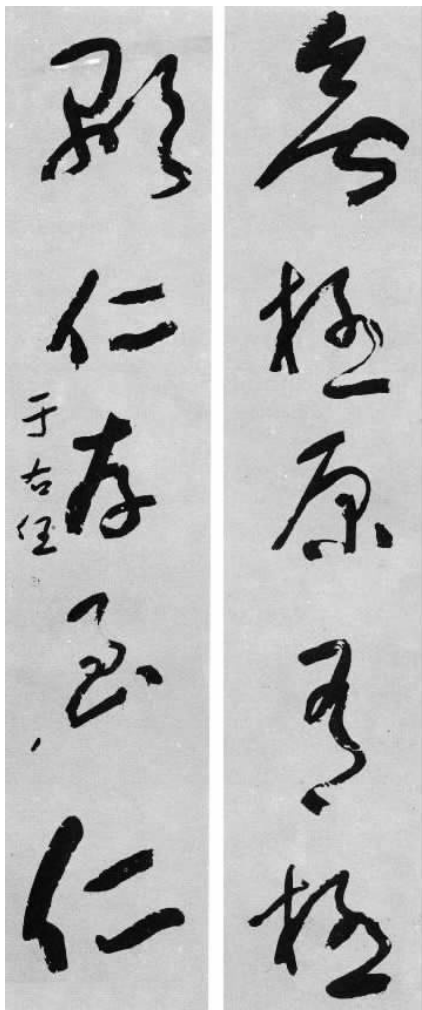 無極原有極
顯仁存至仁
于右任